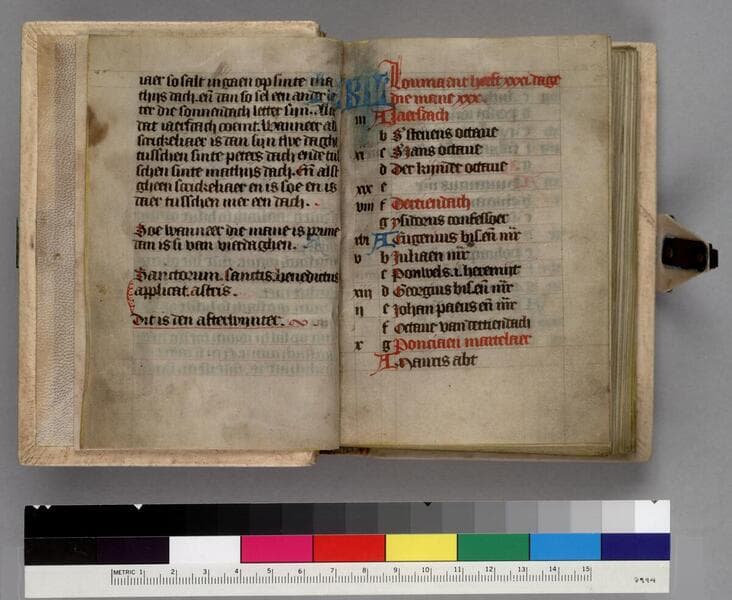 iaer so salt ingaen op sinte ma
thijs dach. en dan so sel een ander
ter die sonnendach letter sijn. Alle
dat iaersdach coemt. Wanneer als
scrickeliaer is dan sijn twe daghe
tusschen sinte peters dach ende
schen sinte mathijs dach. En alst
gheen scrickeliaer en is soe en is
daer tusschen mer een dach.
Soe wanneer die mane is prime
dan is si van vierdaghen.
Sanctorum. sanctis. benedictus
applicat. astris.
Dit is den afterwijnter.
Louwmaent heeft xxxi. daghe
die mane xxx.
iii A Iaersdach
b S stevens octave
xi c S Jans octave
d Der kijnder octave
xix e
viii f Dertiendach
g ysidorus confessoer
xvi A Eugenius bis. en mr
v b Juliaen mr
c Pouwels. i. heremijt
xiii d Georgius bis. en mr
ii e Johan paeus en mr
f Octave van dertiendach
x g Ponciaen martelaer
A Mauris abt
METRIC 1 2 3 4 5 6 7 8 9 10 11 12 13 14 15